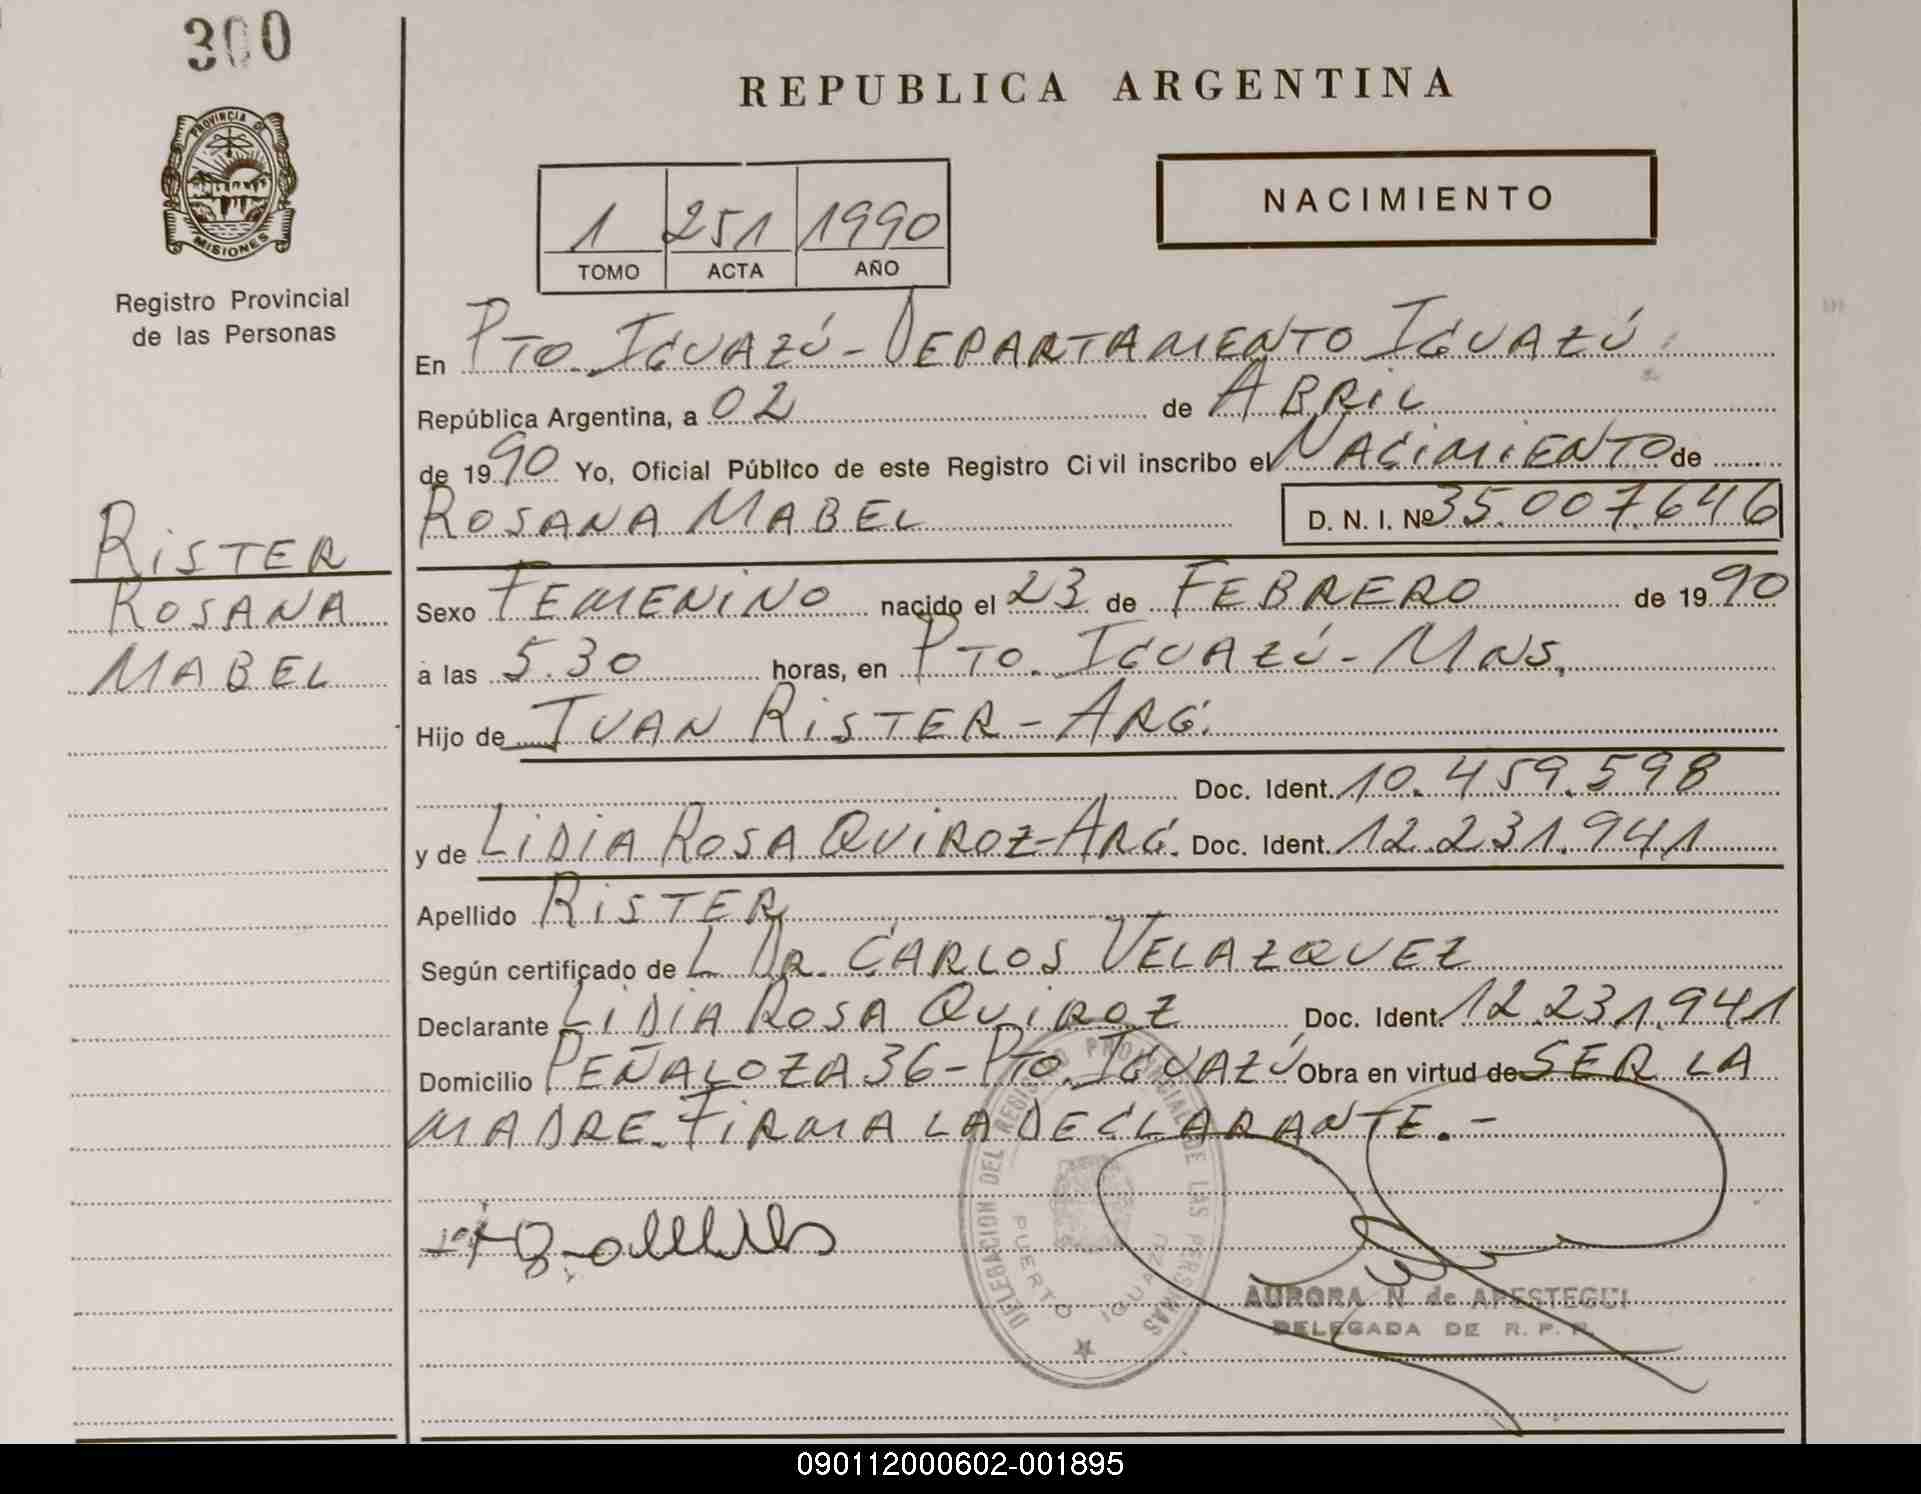 300
REPUBLICA ARGENTINA
PROVINCIA DE
MISIONES
Registro Provincial
de las Personas
1 251 1990
TOMO ACTA AÑO
NACIMIENTO
En PTO. IGUAZÚ - DEPARTAMENTO IGUAZÚ
República Argentina, a 02 de ABRIL
de 1990 Yo, Oficial Público de este Registro Civil inscribo el NACIMIENTO de
ROSANA MABEL D. N. I. Nº 35.007.646
RISTER
ROSANA
MABEL
Sexo FEMENINO nacido el 23 de FEBRERO de 1990
a las 5.30 horas, en PTO. IGUAZÚ - MNS.
Hijo de JUAN RISTER - ARG.
Doc. Ident. 10.459.598
y de LIDIA ROSA QUIROZ - ARG. Doc. Ident. 12.231.941
Apellido RISTER
Según certificado de L DR. CARLOS VELAZQUEZ
Declarante LIDIA ROSA QUIROZ Doc. Ident. 12.231.941
Domicilio PEÑALOZA 36 - PTO. IGUAZÚ Obra en virtud de SER LA
MADRE. FIRMA LA DECLARANTE. -
DELEGACION DEL REGISTRO PROVINCIAL DE LAS PERSONAS
PUERTO IGUAZU
AURORA N. de APESTEGUI
DELEGADA DE R. P. P.
090112000602-001895